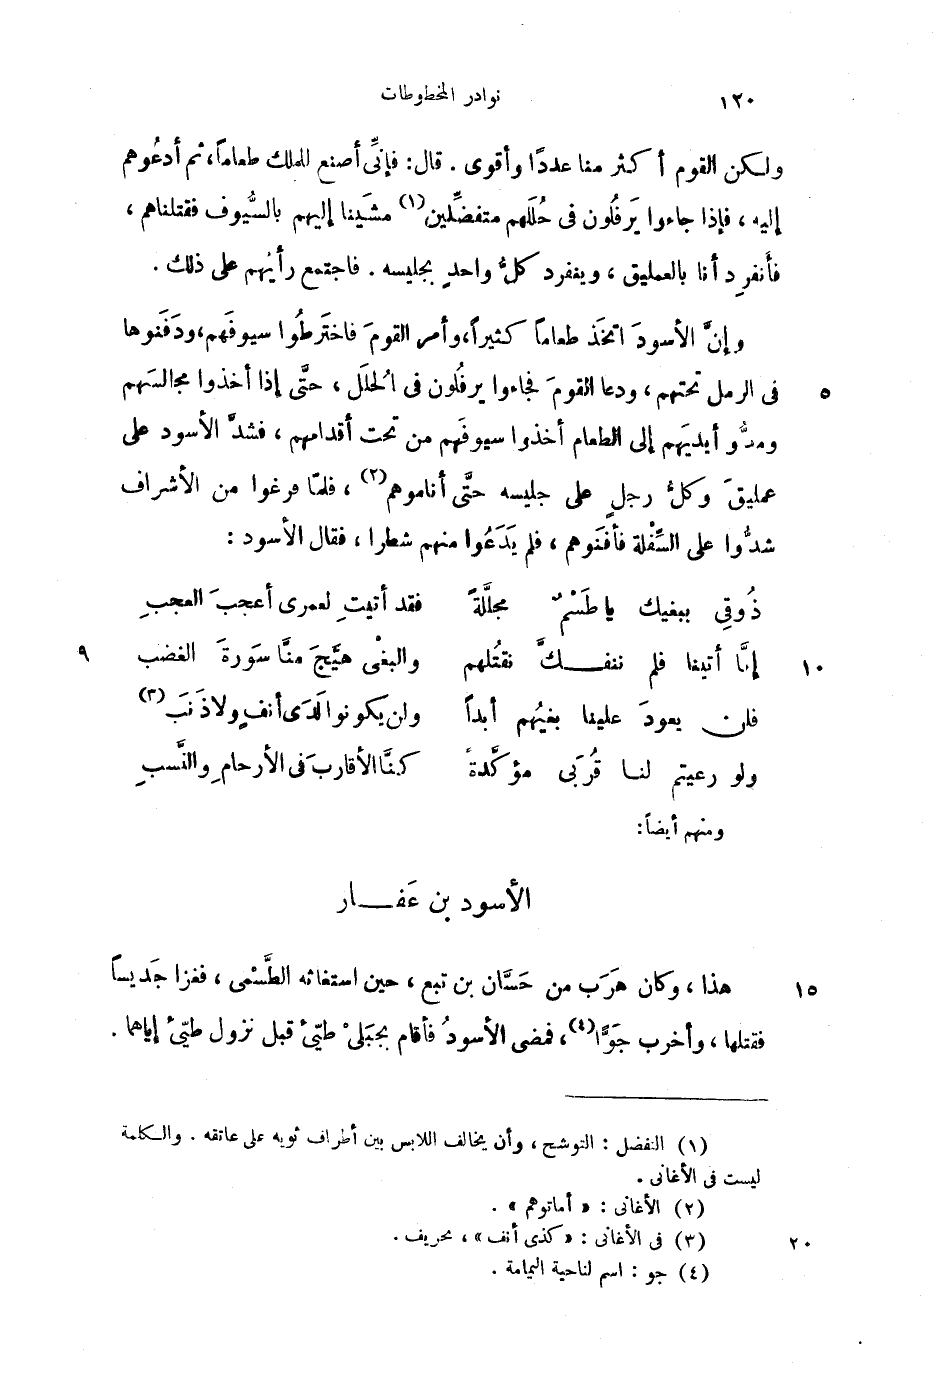 ١٢٠ نوادر المخطوطات
ولكن القوم أكثر منا عددًا وأقوى . قال: فإنِّي أصنع للملك طعاماً، ثم أدعُوهم
إليه ، فإذا جاءوا يَرفُلون فى حُلَلهم متفضِّلين(١) مشَينا إليهم بالسُّيوف فقتلناهم ،
فأَنفرِد أنا بالعمليق ، وينفرد كلُّ واحدٍ بجليسه . فاجتمع رأيُهم على ذلك .
وإنَّ الأسودَ اتخَذ طعاماً كثيراً، وأمر القومَ فاختَرطُوا سيوفَهم، ودَفَنوها
٥ فى الرمل تحتهم ، ودعا القومَ فجاءوا يرفُلون فى الحُلَل ، حتَّى إذا أخذوا مجالسَهم
ومدُّو أيديَهم إلى الطعام أخذوا سيوفَهم من تحت أقدامهم ، فشدَّ الأسود على
عمليقَ وكلُّ رجلٍ على جليسه حتَّى أناموهم(٢) ، فلمّا فرغوا من الأشراف
شدُّوا على السِّفْلة فأفنَوهم ، فلم يَدَعُوا منهم شطرا ، فقال الأسود :
ذُوقِى ببغيك ياطَسْمٌ مجلَّلةً فقد أتيتِ لعمرى أعجبَ العجبِ
١٠ إنَّا أتينا فلم ننفـــكَّ نقتُلهم والبغْى هيَّجَ منَّا سَورةَ الغضب ٩
فلن يعودَ علينا بغيُهم أبداً ولن يكونوا لَدَى أنفٍ ولا ذَنَبِ(٣)
ولو رعيتم لنـا قُرَبى مؤكَّدةً كنَّا الأقاربَ فى الأرحامِ والنَّسبِ
ومنهم أيضاً:
الأسود بن عَفـــار
١٥ هذا ، وكان هرَب من حَسَّان بن تبع ، حين استغاثه الطَّسْمى ، فغزا جَديساً
فقتلها ، وأخرب جَوًّا(٤)، فمضى الأسودُ فأقام بجبَلىْ طيّئ قبل نزول طيّئ إياها .
(١) التفضل : التوشح ، وأن يخالف اللابس بين أطراف ثوبه على عاتقه . والكلمة
ليست فى الأغانى .
(٢) الأغانى : « أماتوهم » .
٢٠ (٣) فى الأغانى : «كذى أنف» ، تحريف .
(٤) جو : اسم لناحية اليمامة .